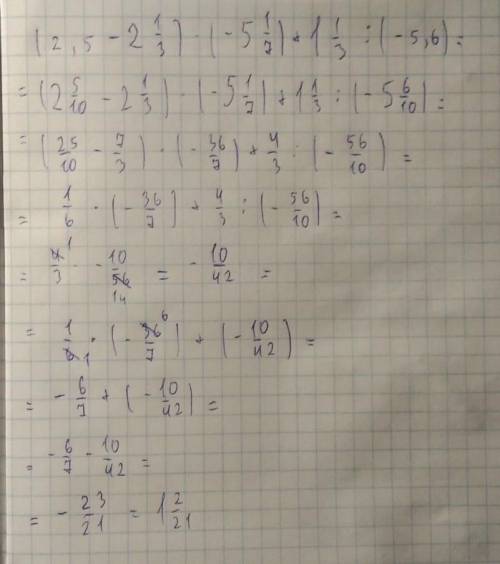 (2,5 - 2 1/3) · (-5 1/7) + 1 1/3 : (-5,6) =
= (2 5/10 - 2 1/3) · (-5 1/7) + 1 1/3 : (-5 6/10) =
= (25/10 - 7/3) · (-36/7) + 4/3 : (-56/10) =
= 1/6 · (-36/7) + 4/3 : (-56/10) =
= 4/3 1 - 10/56 14 = - 10/42 =
= 1/6 1 · (-36/7 6) + (-10/42) =
= -6/7 + (-10/42) =
= -6/7 - 10/42 =
= - 23/21 = 1 2/21